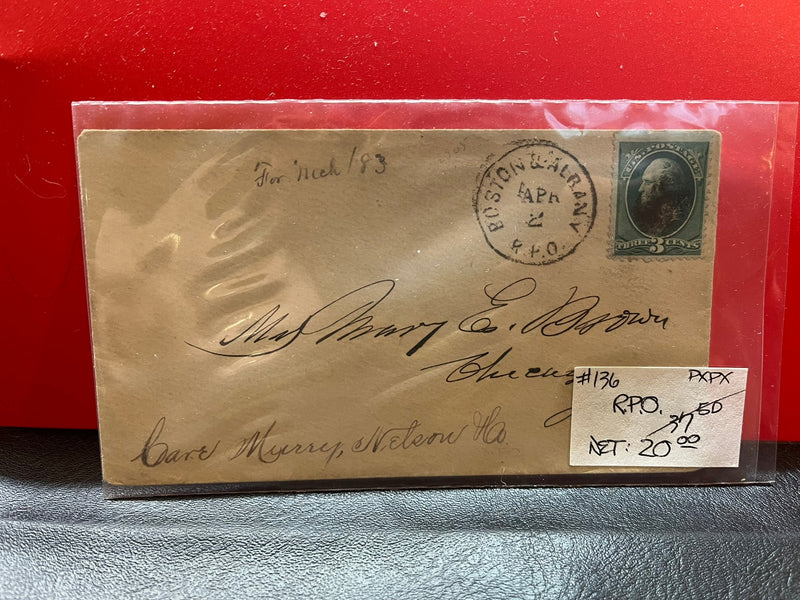 For Mch /83
BOSTON & ALBANY
APR
R.P.O.
U.S. POSTAGE
THREE 3 CENTS
Mary E. Brown
Care Murry, Nelson & Co.
#136 PXPX
R.P.O. 37 50
NET: 20 00